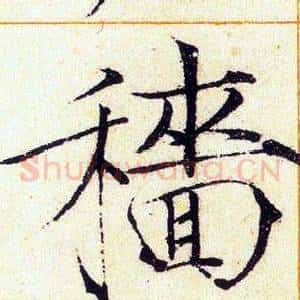 穡
Shufawang.CN